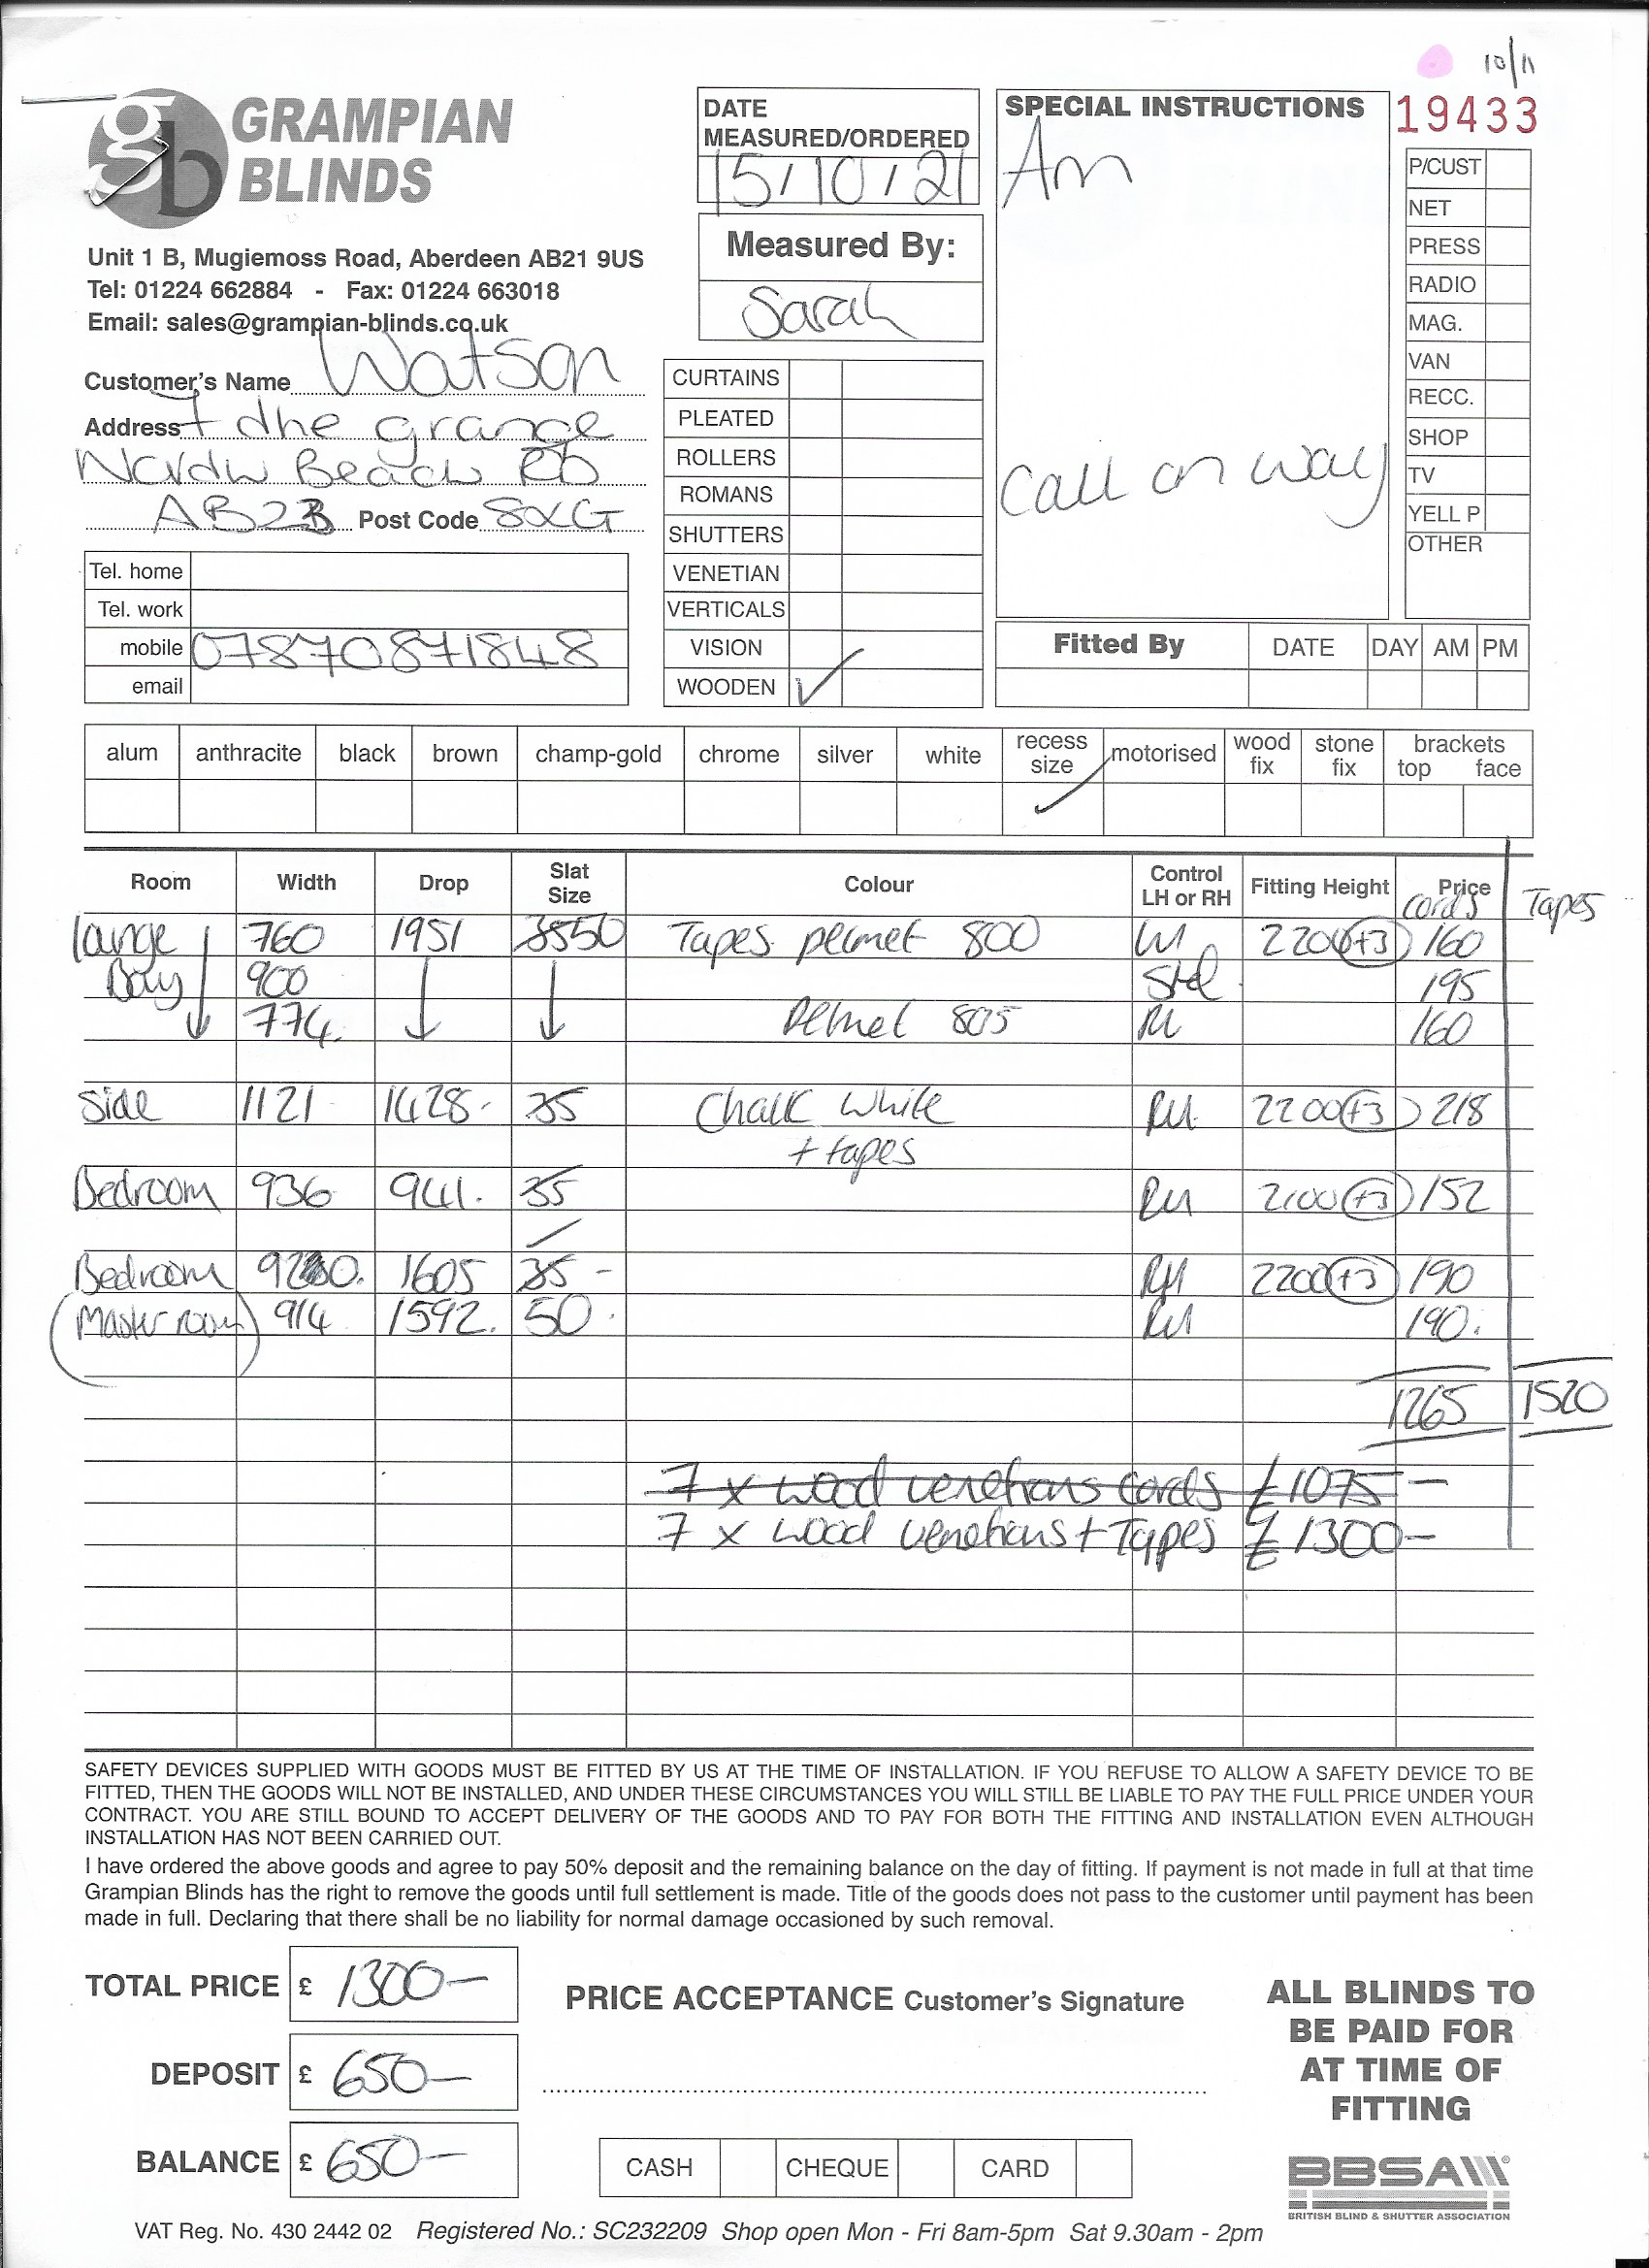 10/11
GRAMPIAN
BLINDS
Unit 1 B, Mugiemoss Road, Aberdeen AB21 9US
Tel: 01224 662884 - Fax: 01224 663018
Email: sales@grampian-blinds.co.uk
Customer's Name Watson
Address 7 the grange
Beach Rd
AB23 Post Code 8XG
Tel. home
Tel. work
mobile 07870871848
email
DATE
MEASURED/ORDERED
15/10/21
Measured By:
Sarah
CURTAINS
PLEATED
ROLLERS
ROMANS
SHUTTERS
VENETIAN
VERTICALS
VISION
WOODEN ✓
SPECIAL INSTRUCTIONS
Am
Call on way
19433
P/CUST
NET
PRESS
RADIO
MAG.
VAN
RECC.
SHOP
TV
YELL P
OTHER
Fitted By DATE DAY AM PM
alum anthracite black brown champ-gold chrome silver white recess size ✓ motorised wood fix stone fix brackets top face
Room Width Drop Slat Size Colour Control LH or RH Fitting Height Price cords Tapes
lounge 760 1951 50 Tapes pelmet 800 LH 2200 +3 160
Bay 900 Std 195
774 pelmet 805 RH 160
Side 1121 1428 35 Chalk White RH 2200 +3 218
+ tapes
Bedroom 936 941 35 RH 2100 +3 152
Bedroom 1605 35 RH 2200 +3 190
(Master room) 914 1592 50 RH 190
1265 1520
7 x wood venetians cords £1075-
7 x wood venetians + Tapes £1300-
SAFETY DEVICES SUPPLIED WITH GOODS MUST BE FITTED BY US AT THE TIME OF INSTALLATION. IF YOU REFUSE TO ALLOW A SAFETY DEVICE TO BE
FITTED, THEN THE GOODS WILL NOT BE INSTALLED, AND UNDER THESE CIRCUMSTANCES YOU WILL STILL BE LIABLE TO PAY THE FULL PRICE UNDER YOUR
CONTRACT. YOU ARE STILL BOUND TO ACCEPT DELIVERY OF THE GOODS AND TO PAY FOR BOTH THE FITTING AND INSTALLATION EVEN ALTHOUGH
INSTALLATION HAS NOT BEEN CARRIED OUT.
I have ordered the above goods and agree to pay 50% deposit and the remaining balance on the day of fitting. If payment is not made in full at that time
Grampian Blinds has the right to remove the goods until full settlement is made. Title of the goods does not pass to the customer until payment has been
made in full. Declaring that there shall be no liability for normal damage occasioned by such removal.
TOTAL PRICE £ 1300-
DEPOSIT £ 650-
BALANCE £ 650-
PRICE ACCEPTANCE Customer's Signature
CASH CHEQUE CARD
ALL BLINDS TO
BE PAID FOR
AT TIME OF
FITTING
BBSA
BRITISH BLIND & SHUTTER ASSOCIATION
VAT Reg. No. 430 2442 02 Registered No.: SC232209 Shop open Mon - Fri 8am-5pm Sat 9.30am - 2pm